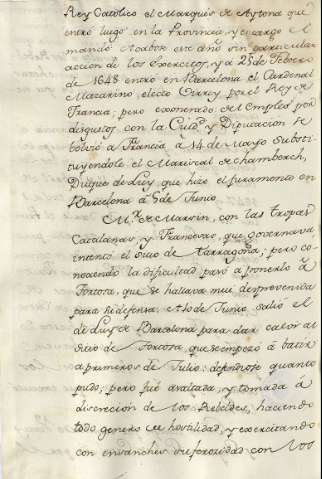 Rey Catolico el Marques de Aytona que
entró luego en la Provincia, y encargo el
mando Acabose este año sin particular
accion de los Exercitos, y a 25 de Febrero
de 1648 entro en Barcelona el Cardenal
Mazarino, electo Virrey por el Rey de
Francia; pero exonerado del Empleo por
disgustos con la Ciud.ᵈ y Diputacion se
bolvió a Francia, a 14 de Mayo Substi-
tuyendole el Mariscal de Chamberch,
Duque de Luy, que hizo el juramento en
Barcelona à 5 de Junio
M.ʳ de Marsin, con las tropas
Catalanas, y Francesas, que governava
intentó el sitio de Tarragona; pero co-
nociendo la dificultad pasó a ponerlo à
Tortosa, que se hallava mui desprevenida
para su defensa. A 10 de Junio salió el
de Luy de Barcelona para dar calor al
Sitio de Tortosa, que se empezó à batir
a primeros de Julio: defendiose quanto
pudo; pero fué avaltada, y tomada à
discrecion de los Rebeldes, haciendo
todo genero de hostilidad, y exercitando
con ensanches su ferosidad con los